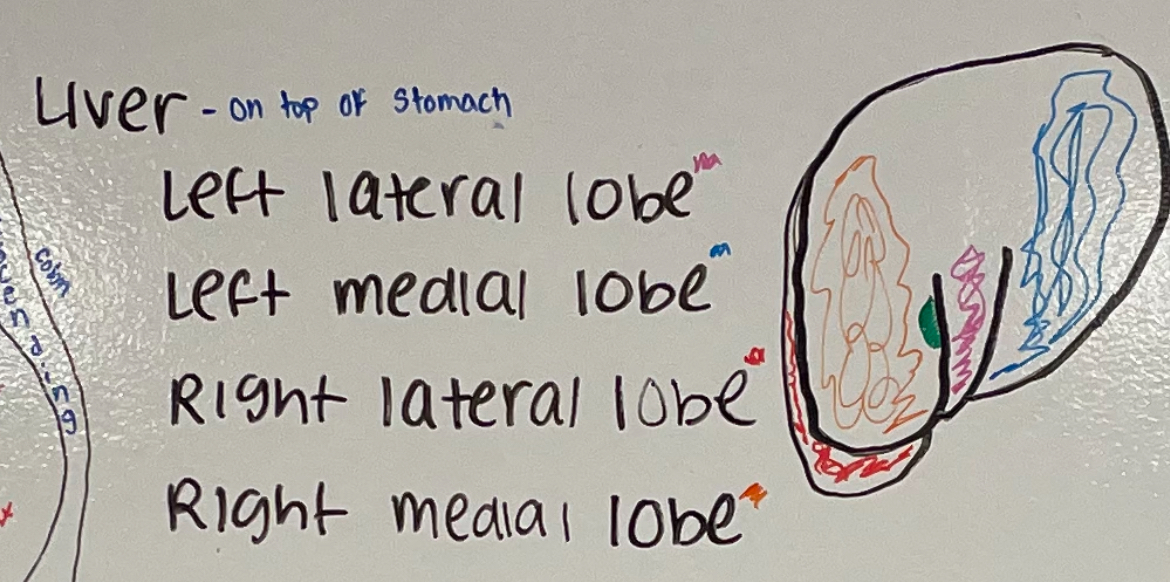 Liver - on top of stomach
Left lateral lobe
Left medial lobe
colon
Right lateral lobe
Right medial lobe